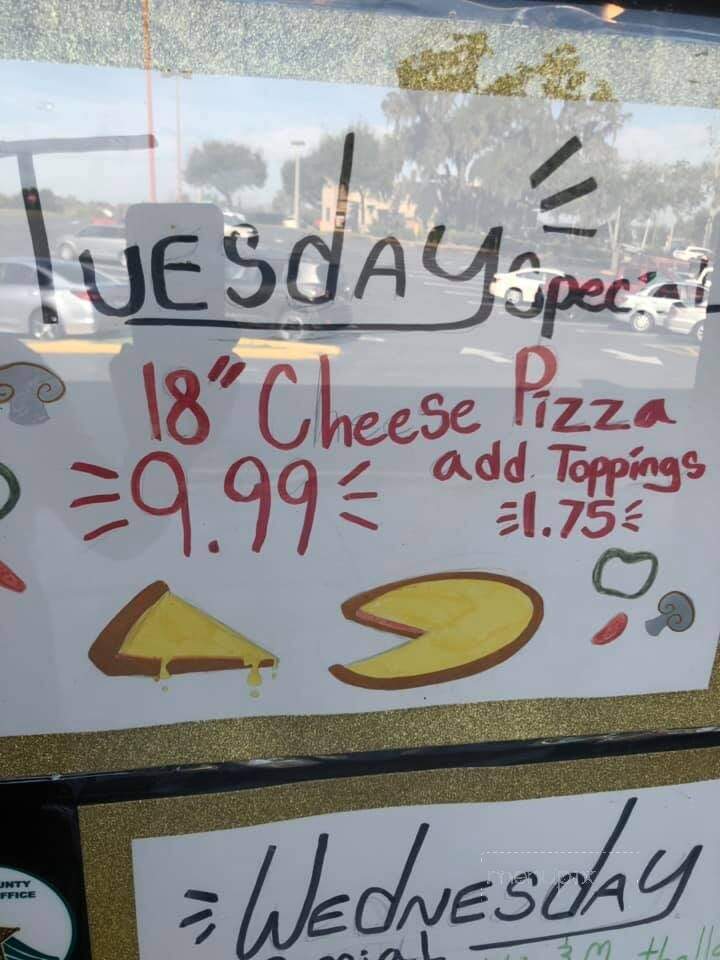 Tuesday Special
18" Cheese Pizza
9.99
add Toppings
1.75
UNTY
FFICE
menupix
Wednesday